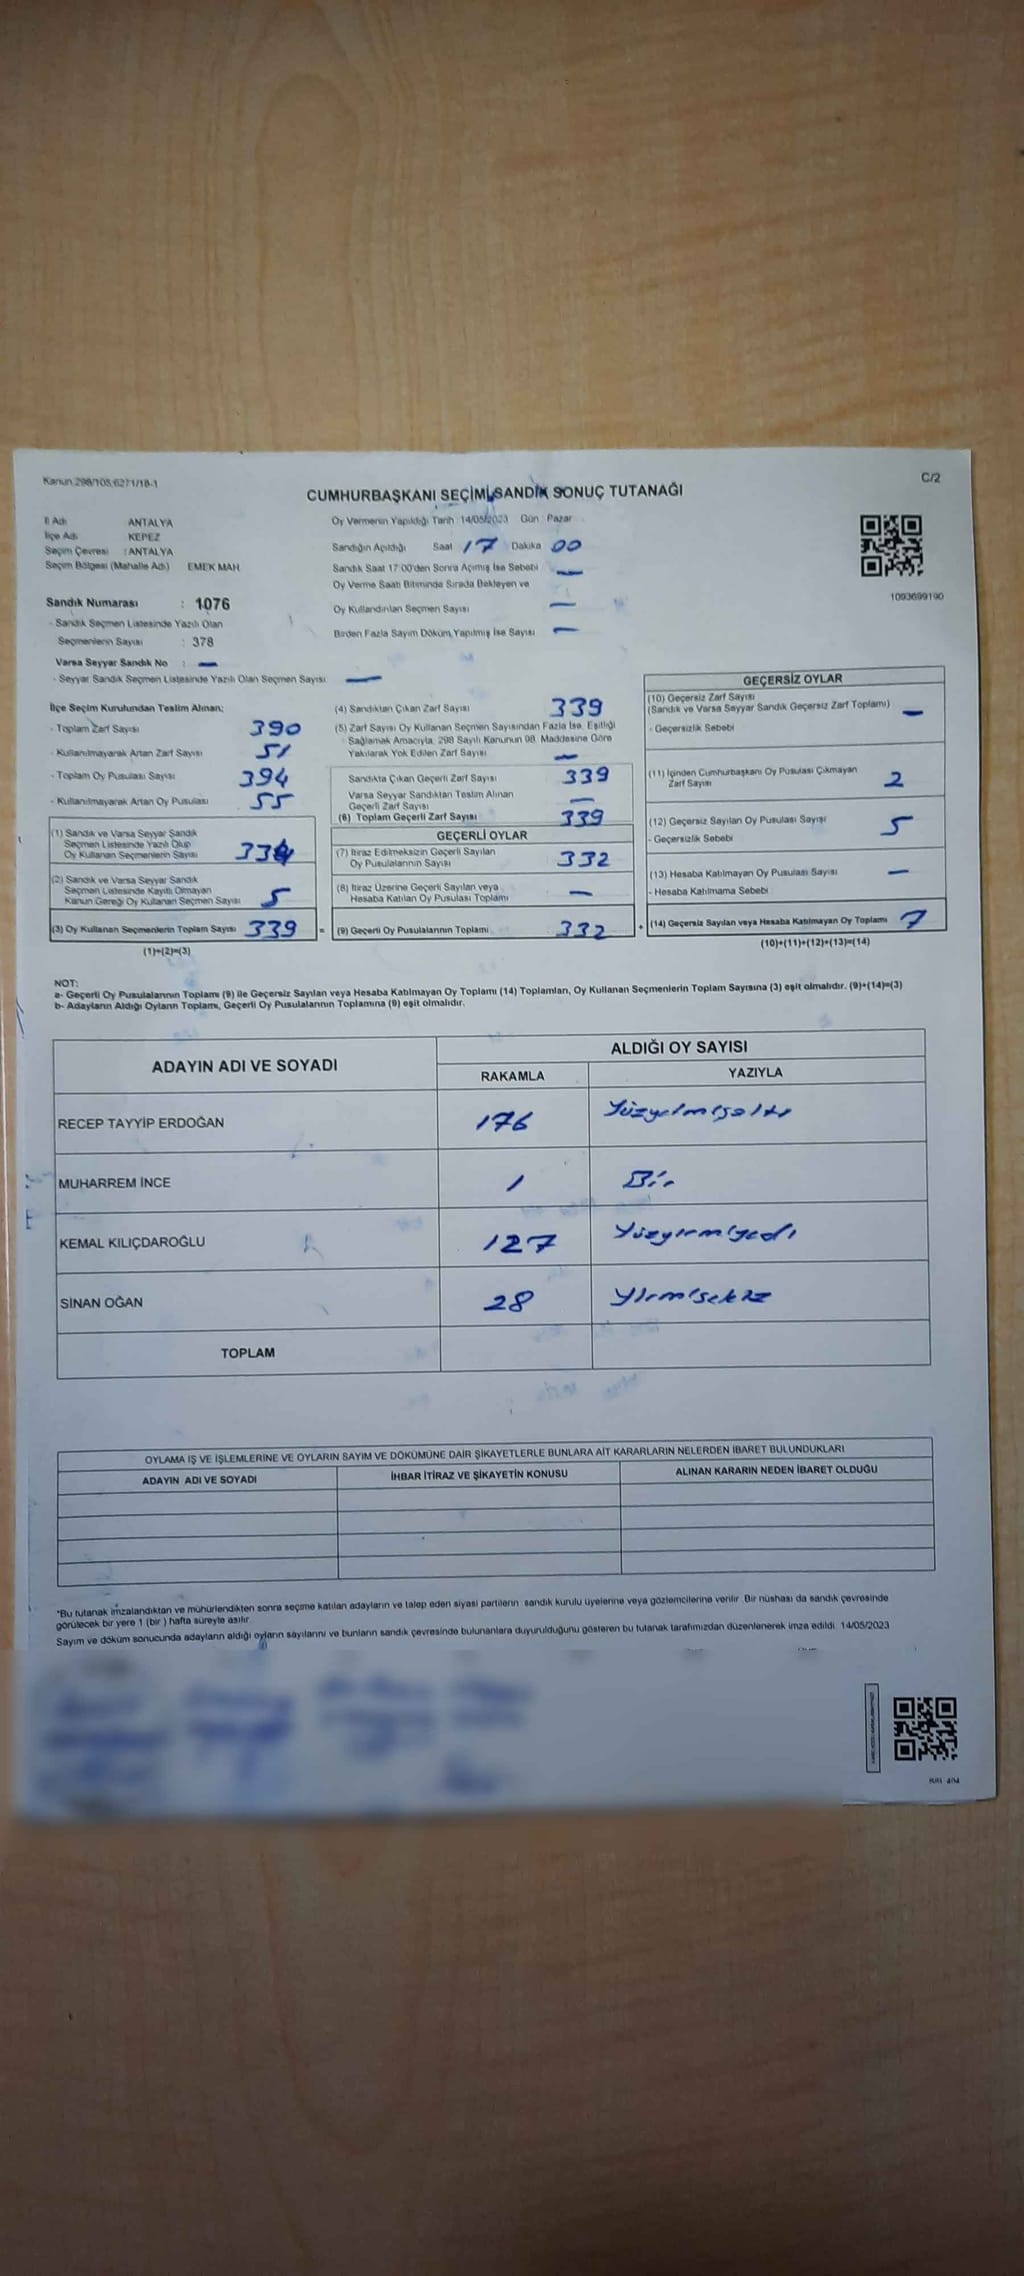 Kanun 298/105,6271/18-1
C/2
CUMHURBAŞKANI SEÇİMİ SANDIK SONUÇ TUTANAĞI
İl Adı ANTALYA
İlçe Adı KEPEZ
Seçim Çevresi : ANTALYA
Seçim Bölgesi (Mahalle Adı) EMEK MAH.
Oy Vermenin Yapıldığı Tarih 14/05/2023 Gün Pazar
Sandığın Açıldığı Saat 17 Dakika 00
Sandık Saat 17:00'den Sonra Açılmış İse Sebebi —
Oy Verme Saati Bitiminde Sırada Bekleyen ve
Oy Kullandırılan Seçmen Sayısı —
Birden Fazla Sayım Döküm Yapılmış İse Sayısı —
1093699190
Sandık Numarası : 1076
- Sandık Seçmen Listesinde Yazılı Olan
Seçmenlerin Sayısı : 378
Varsa Seyyar Sandık No : —
- Seyyar Sandık Seçmen Listesinde Yazılı Olan Seçmen Sayısı —
İlçe Seçim Kurulundan Teslim Alınan;
- Toplam Zarf Sayısı 390
- Kullanılmayarak Artan Zarf Sayısı 51
- Toplam Oy Pusulası Sayısı 394
- Kullanılmayarak Artan Oy Pusulası 55
(1) Sandık ve Varsa Seyyar Sandık
Seçmen Listesinde Yazılı Olup
Oy Kullanan Seçmenlerin Sayısı 334
(2) Sandık ve Varsa Seyyar Sandık
Seçmen Listesinde Kayıtlı Olmayan
Kanun Gereği Oy Kullanan Seçmen Sayısı 5
(3) Oy Kullanan Seçmenlerin Toplam Sayısı 339 =
(1)+(2)=(3)
(4) Sandıktan Çıkan Zarf Sayısı 339
(5) Zarf Sayısı Oy Kullanan Seçmen Sayısından Fazla İse, Eşitliği
Sağlamak Amacıyla, 298 Sayılı Kanunun 98. Maddesine Göre
Yakılarak Yok Edilen Zarf Sayısı —
Sandıkta Çıkan Geçerli Zarf Sayısı 339
Varsa Seyyar Sandıktan Teslim Alınan
Geçerli Zarf Sayısı —
(6) Toplam Geçerli Zarf Sayısı 339
GEÇERLİ OYLAR
(7) İtiraz Edilmeksizin Geçerli Sayılan
Oy Pusulalarının Sayısı 332
(8) İtiraz Üzerine Geçerli Sayılan veya
Hesaba Katılan Oy Pusulası Toplamı —
(9) Geçerli Oy Pusulalarının Toplamı 332 +
GEÇERSİZ OYLAR
(10) Geçersiz Zarf Sayısı
(Sandık ve Varsa Seyyar Sandık Geçersiz Zarf Toplamı) —
- Geçersizlik Sebebi
(11) İçinden Cumhurbaşkanı Oy Pusulası Çıkmayan
Zarf Sayısı 2
(12) Geçersiz Sayılan Oy Pusulası Sayısı 5
- Geçersizlik Sebebi
(13) Hesaba Katılmayan Oy Pusulası Sayısı —
- Hesaba Katılmama Sebebi
(14) Geçersiz Sayılan veya Hesaba Katılmayan Oy Toplamı 7
(10)+(11)+(12)+(13)=(14)
NOT:
a- Geçerli Oy Pusulalarının Toplamı (9) ile Geçersiz Sayılan veya Hesaba Katılmayan Oy Toplamı (14) Toplamları, Oy Kullanan Seçmenlerin Toplam Sayısına (3) eşit olmalıdır. (9)+(14)=(3)
b- Adayların Aldığı Oyların Toplamı, Geçerli Oy Pusulalarının Toplamına (9) eşit olmalıdır.
ADAYIN ADI VE SOYADI ALDIĞI OY SAYISI
RAKAMLA YAZIYLA
RECEP TAYYİP ERDOĞAN 176 Yüzyetmişaltı
MUHARREM İNCE 1 Bir
KEMAL KILIÇDAROĞLU 127 Yüzyirmiyedi
SİNAN OĞAN 28 Yirmisekiz
TOPLAM
OYLAMA İŞ VE İŞLEMLERİNE VE OYLARIN SAYIM VE DÖKÜMÜNE DAİR ŞİKAYETLERLE BUNLARA AİT KARARLARIN NELERDEN İBARET BULUNDUKLARI
ADAYIN ADI VE SOYADI İHBAR İTİRAZ VE ŞİKAYETİN KONUSU ALINAN KARARIN NEDEN İBARET OLDUĞU
*Bu tutanak imzalandıktan ve mühürlendikten sonra seçime katılan adayların ve talep eden siyasi partilerin sandık kurulu üyelerine veya gözlemcilerine verilir. Bir nüshası da sandık çevresinde
görülecek bir yere 1 (bir ) hafta süreyle asılır.
Sayım ve döküm sonucunda adayların aldığı oyların sayılarını ve bunların sandık çevresinde bulunanlara duyurulduğunu gösteren bu tutanak tarafımızdan düzenlenerek imza edildi. 14/05/2023